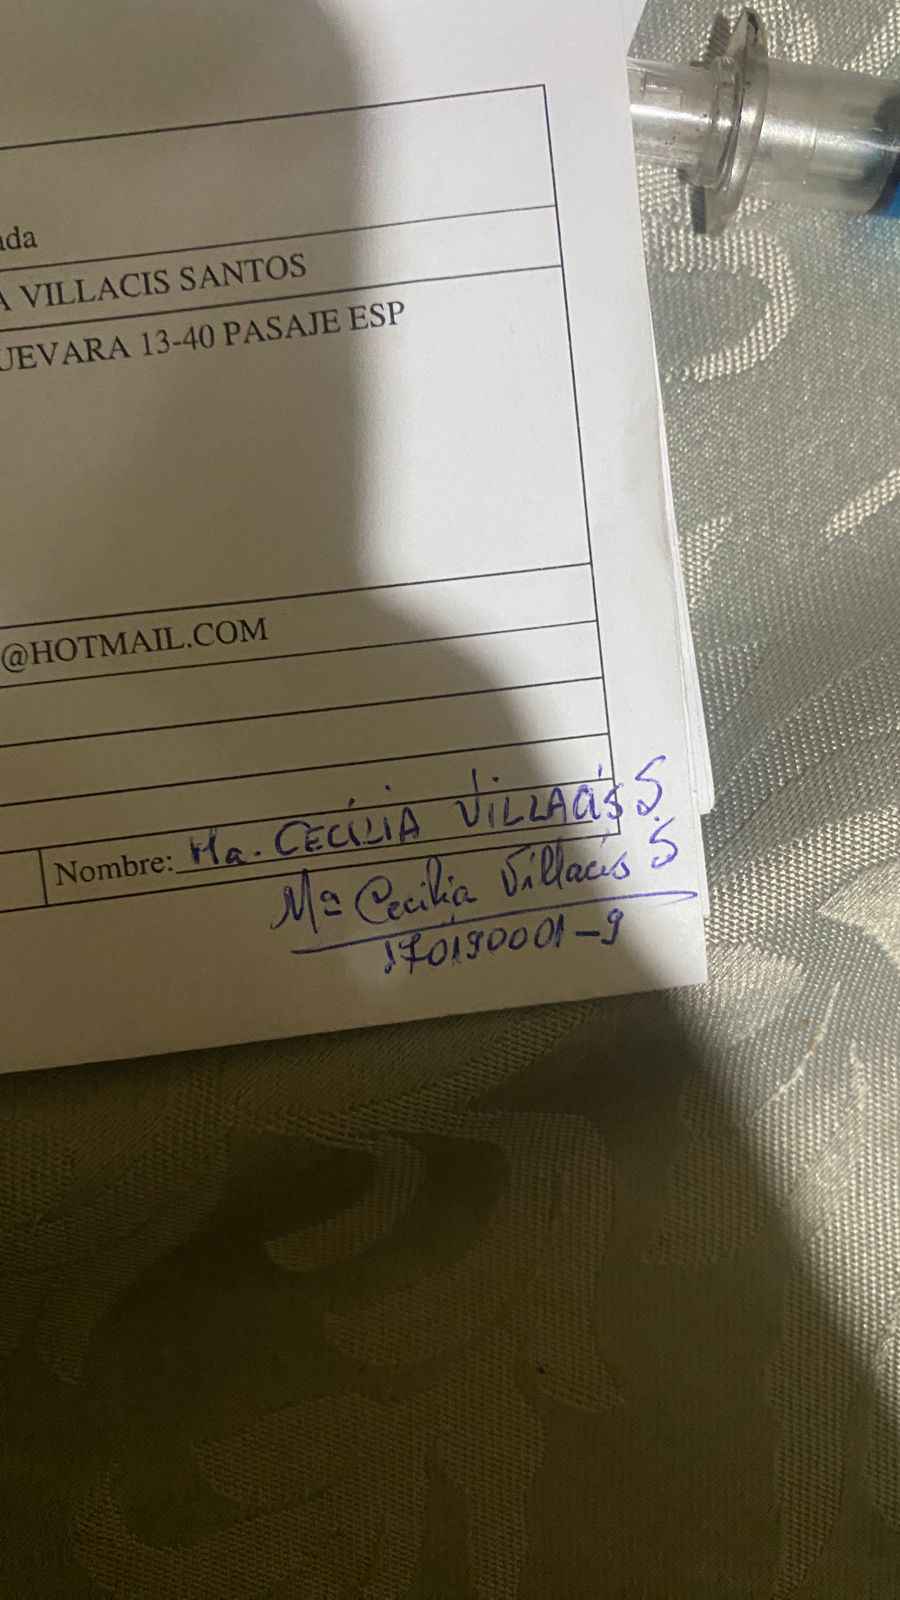 ada
A VILLACIS SANTOS
UEVARA 13-40 PASAJE ESP
@HOTMAIL.COM
Nombre: Ma. CECILIA VILLACÍS S.
Mª Cecilia Villacís S
170190001-9